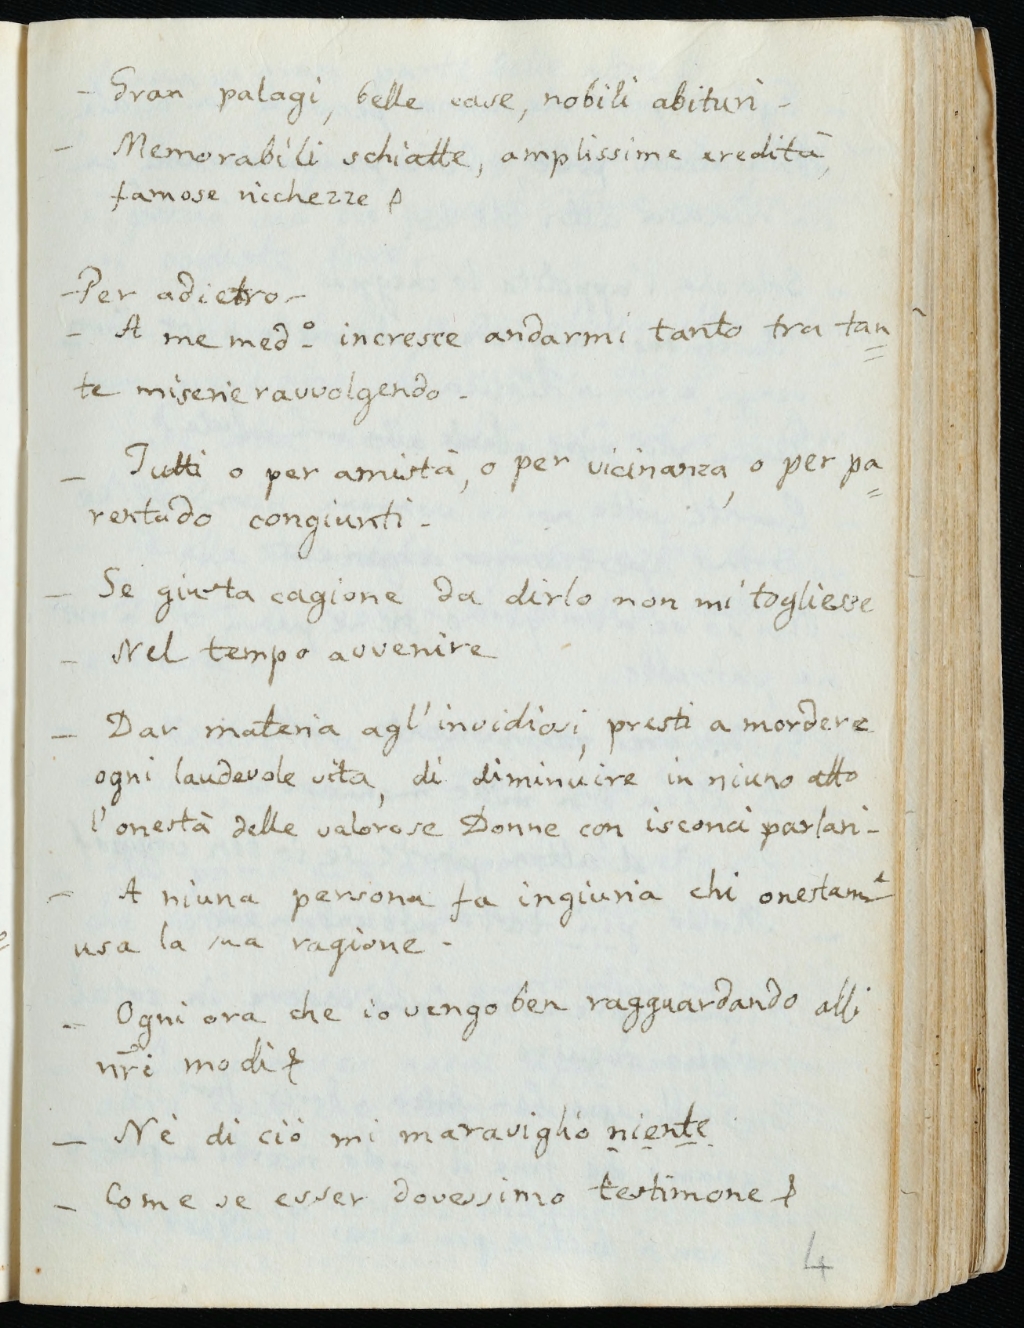 - Gran palagi, belle case, nobili abituri -
- Memorabili schiatte, amplissime eredità,
famose ricchezze &
- Per adietro -
- A me med.º incresce andarmi tanto tra tan=
te miserie ravvolgendo -
- Tutti o per amistà, o per vicinanza, o per pa=
rentado congiunti -
- Se giusta cagione da dirlo non mi togliesse
- Nel tempo avvenire
- Dar materia agl'invidiosi, presti a mordere
ogni laudevole vita, di diminuire in niuno atto
l'onestà delle valorose Donne con isconci parlari -
- A niuna persona fa ingiuria chi onestam.e
usa la sua ragione -
- Ogni ora che io vengo ben ragguardando alli
nr̃i modi &
- Nè di ciò mi maraviglio niente
- Come se esser dovessimo testimone &
4